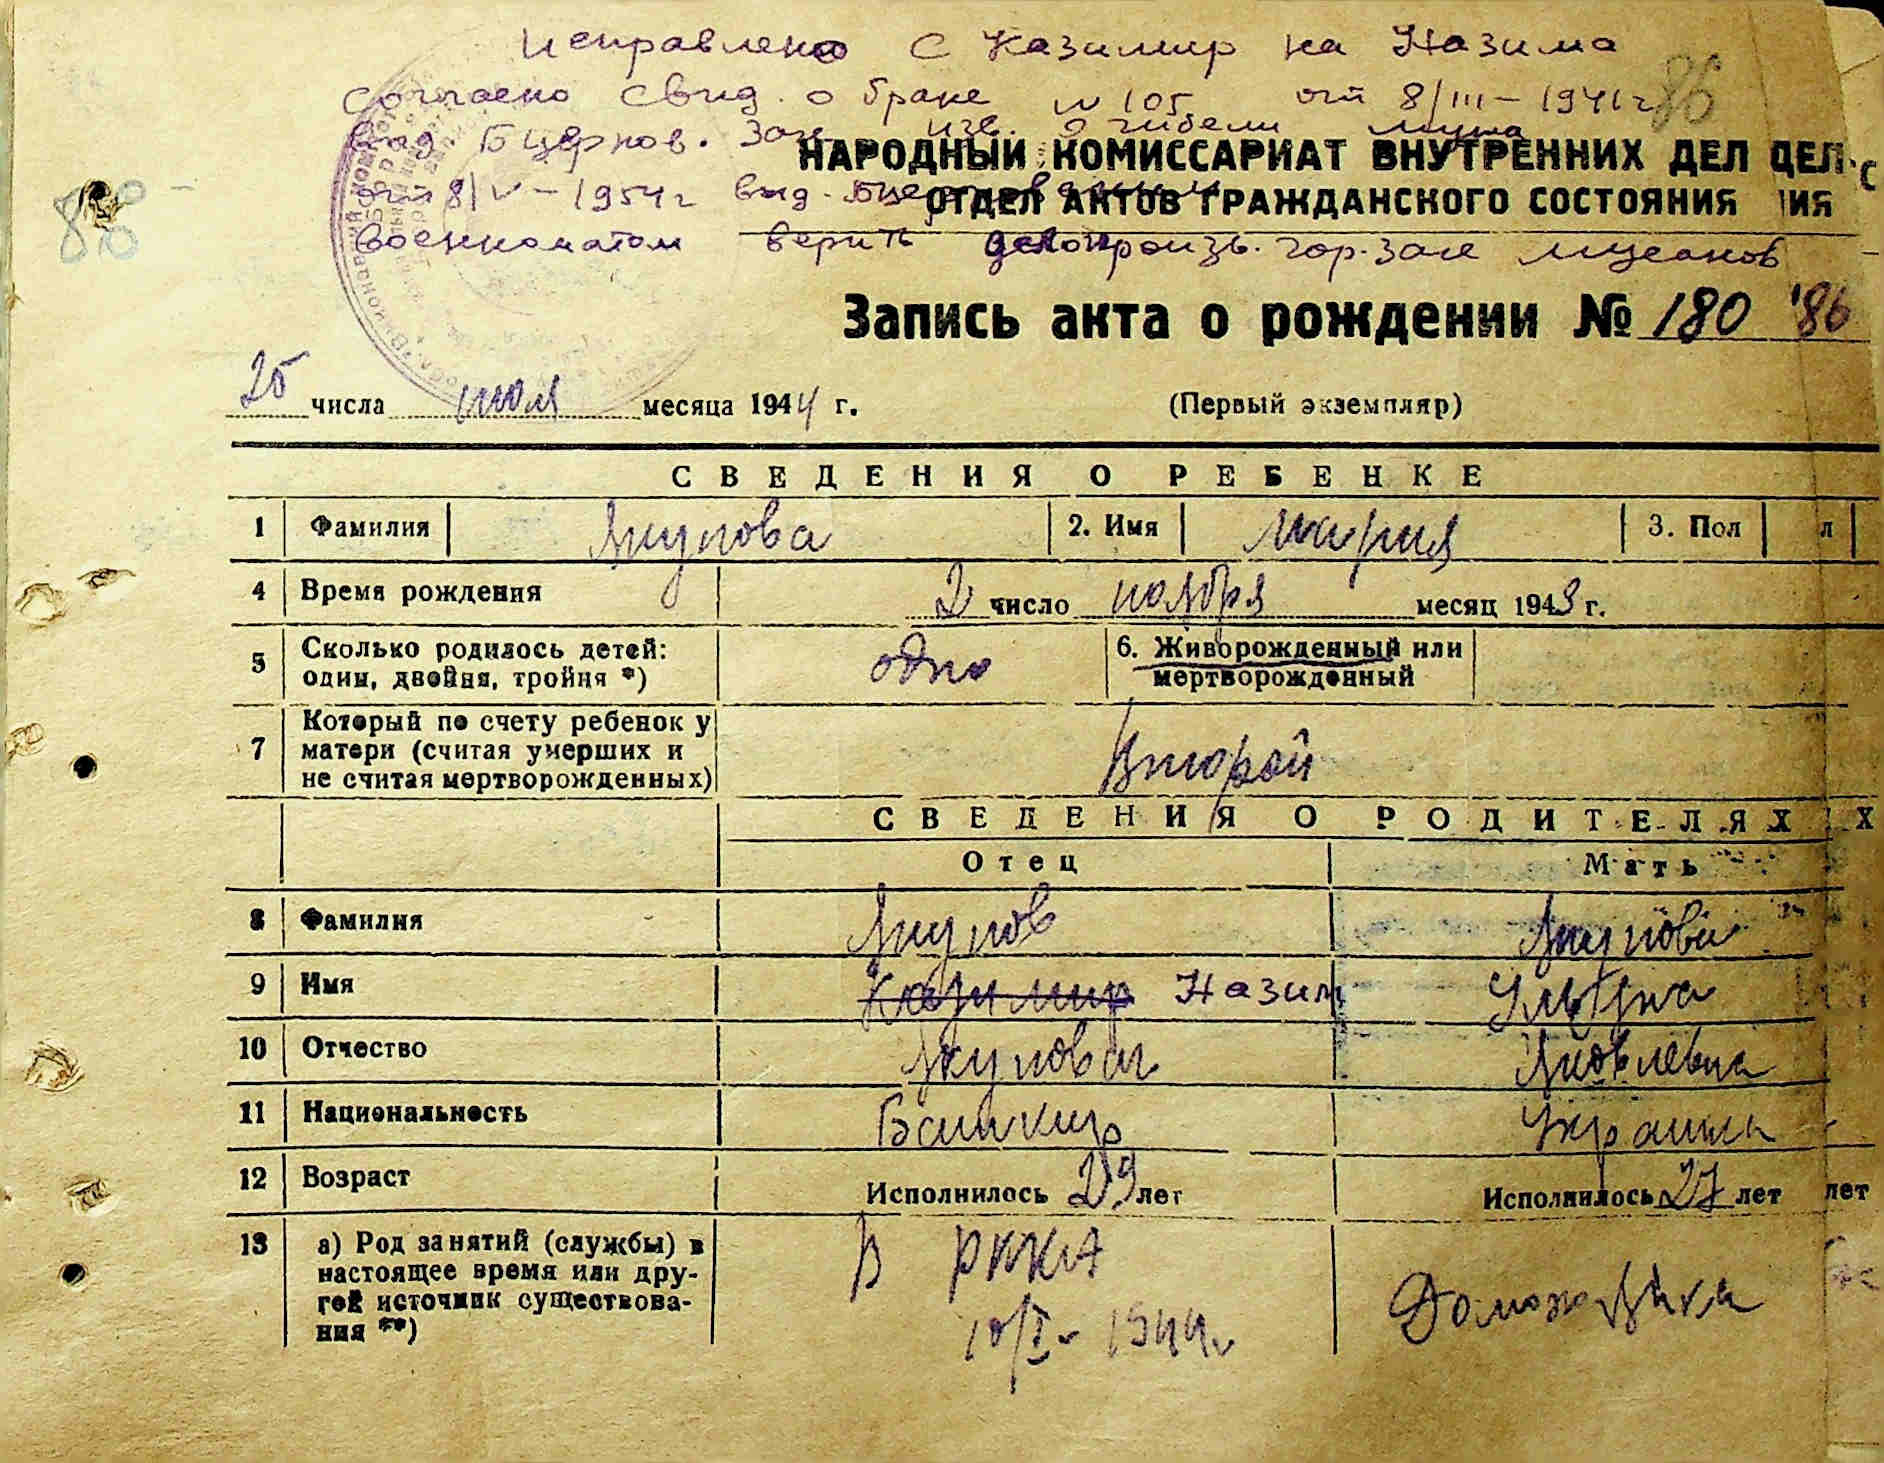 Исправлено с Казимир на Назима
согласно свид. о браке № 105 от 8/III – 1941 г
выд Бцерков. Загс изв. о гибели мужа
от 8/V – 1954 г выд. Бцерковским
военкоматом верить делопроизв. гор.загс
86
НАРОДНЫЙ КОМИССАРИАТ ВНУТРЕННИХ ДЕЛ ДЕЛ С
ОТДЕЛ АКТОВ ГРАЖДАНСКОГО СОСТОЯНИЯ ИЯ
Запись акта о рождении № 180 '86
25 числа июля месяца 1944 г. (Первый экземпляр)
СВЕДЕНИЯ О РЕБЕНКЕ
1 Фамилия Якупова 2. Имя Мария 3. Пол л
4 Время рождения 2 число ноября месяц 1943 г.
5 Сколько родилось детей: одно 6. Живорожденный или
один, двойня, тройня *) мертворожденный
7 Который по счету ребенок у
матери (считая умерших и Второй
не считая мертворожденных)
СВЕДЕНИЯ О РОДИТЕЛЯХ Х
Отец Мать
8 Фамилия Якупов Якупова
9 Имя Казимир Назим Ульяна
10 Отчество Якупович Яковлевна
11 Национальность Башкир
12 Возраст Исполнилось 29 лет Исполнилось 27 лет лет
13 а) Род занятий (службы) в В РККА
настоящее время или дру- Домохозяйка
гой источник существова- 10/I – 1944 г
ния **)